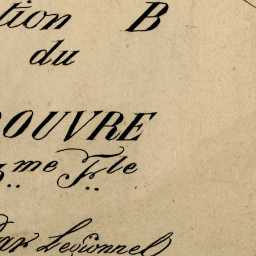 tion B
du
OUVRE
3.me F.lle
Par Lecionnel